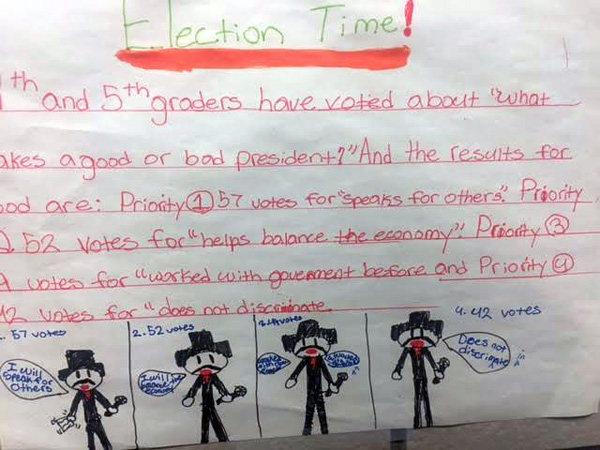 Election Time!
th and 5th graders have voted about "what
akes a good or bad president?" And the results for
ood are: Priority ① 57 votes for "speaks for others". Priority
52 votes for "helps balance the economy". Priority ③
votes for "worked with goverment before and Priority ④
42 votes for "does not discriminate
57 votes
2. 52 votes
votes
4. 42 votes
I will speak for others
I will balance economy
Does not discriminate